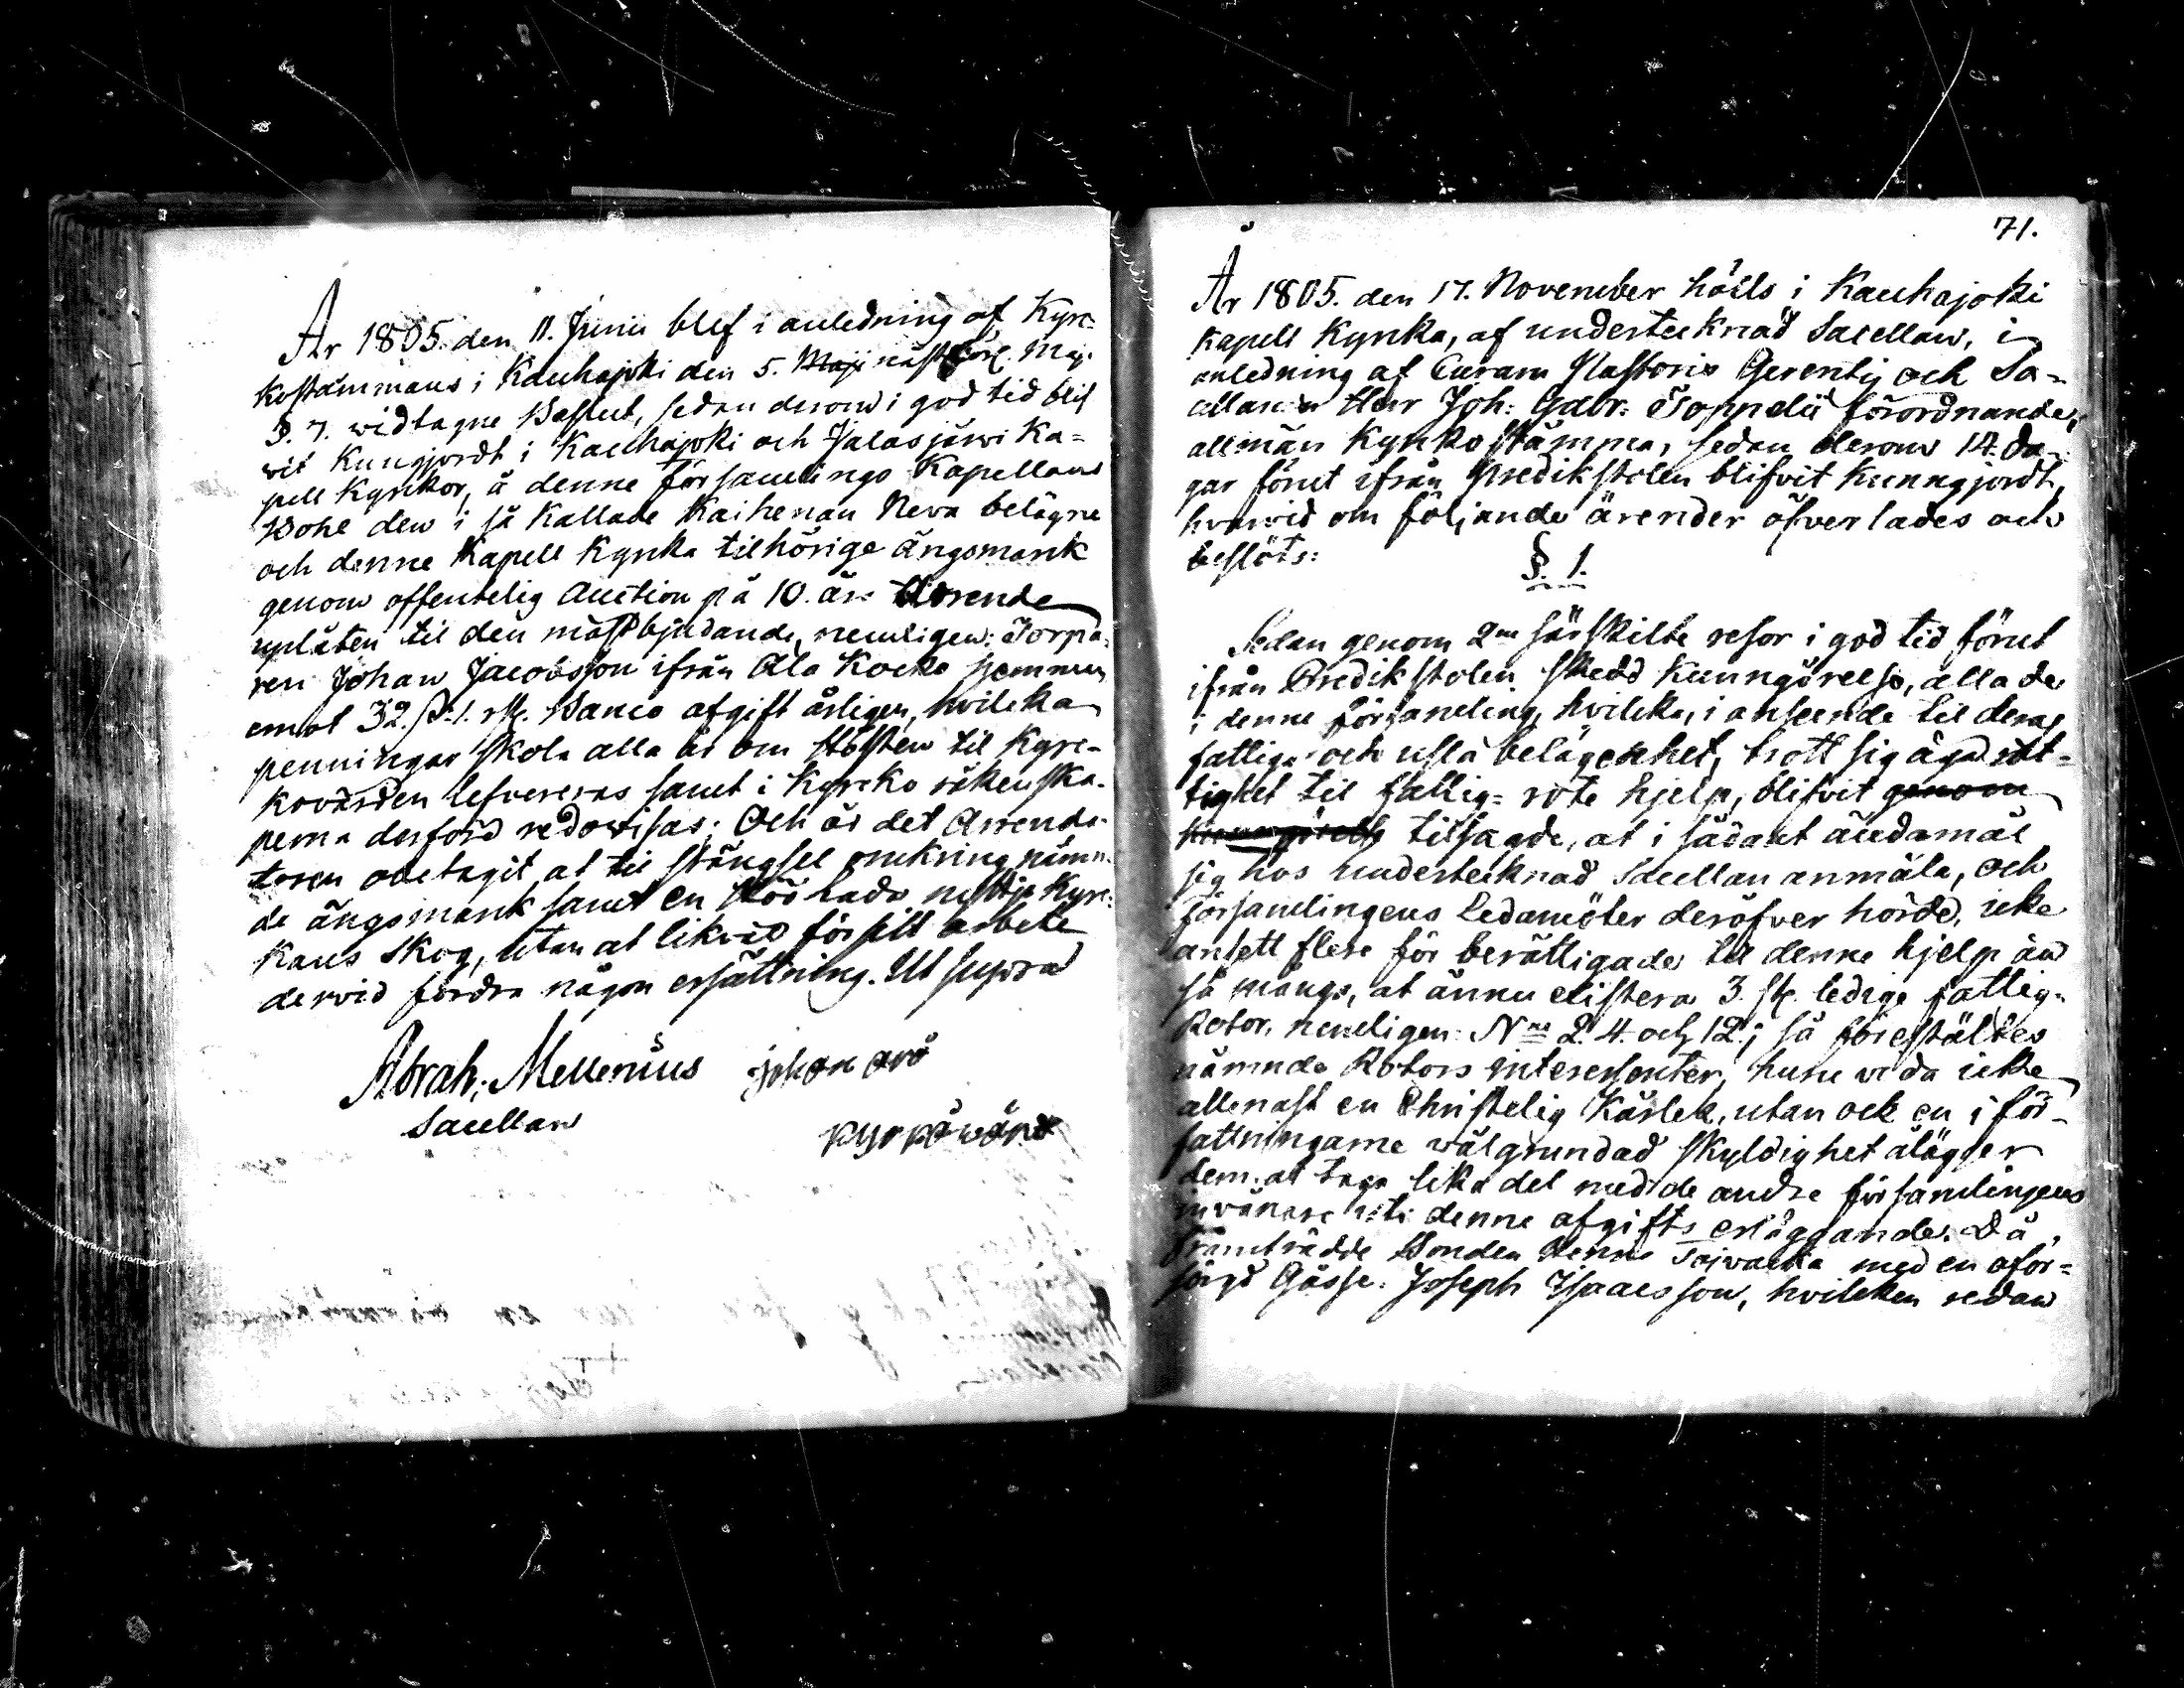 År 1805. den 11. Junii blef i anledning af Kyr-
kostämmans i Kauhajoki den 5. Maji nästförl. Maj.
§. 7. widtagne Beslut, sedan derom i god tid blif
wit Kungjordt i Kauhajoki och Jalasjärwi Ka=
pell Kyrkor, å denne församlings Kapellans
Bohl den i så Kallade Kaihenan Neva belägne
och denne Kapell Kyrka tilhörige ängsmark
genom offentelig Auction på 10. års Arende
uplåten til den mäst bjudande, nemligen: Torpa=
ren Johan Jacobsson ifrån Ala Kocko hemman
emot 32. s:l. rg. Banco afgift årligen, hvilcka
penningar skola alla år om Hösten til Kyrc-
kovärden lefvereras samt i Kyrcko räkenska-
perna derföre redowisas; Och är det Arrenda-
toren obetagit at til stängsel omkring nämn-
de ängsmark samt en Höö lada nyttja Kyr-
kans Skog, utan at likväl för sitt arbete
dervid fordra någon ersättning. Ut supra
Abrah. Mellenius Johan arö
Sacellan
Kyrkowärd
71.
År 1805. den 17. November hölls i Kauhajoki
Kapell Kyrka, af undertecknad Sacellan, i
anledning af Curam Pastoris Gerentis och Sa=
cellanen Herr Joh: Gabr: Toppelii förordnande,
allmän Kyrko stämma, sedan derom 14. da-
gar förut ifrån Predikstolen blifvit Kunngjordt,
hvarvid om följande ärender öfverlades och
beslöts:
§. 1.
Sedan genom 2ne särskilte resor i god tid förut
ifrån Predikstolen skedd Kunngörelse, alla de
i denne församling, hvilcka, i anseende til deras
fattige och usla belägenhet, trott sig äga rät-
tighet til fattig= rote hjelp, blifvit genom
Kunngörelse tilsagde, at i sådant ändamål
sig hos undertecknad Sacellan anmäla, och
församlingens Ledamöter deröfver hörde, icke
ansett flere för berättigade til denne hjelp än
så många, at ännu existera 3. st. ledige fattig-
Rotor, nemligen: Nris 2. 4. och 12.; så föreställtes
nämnde Rotors interessenter, huru vida icke
allenast en Christelig Kärlek, utan ock en i för-
fattningarne wälgrundad skyldighet ålägger
dem at taga lika del med de andre församlingens
invånare uti denne afgifts erläggande. Då
framträdde Bonden Henric Taiwalka med en oför=
sörgd Gosse: Joseph Isaacsson, hvilcken redan